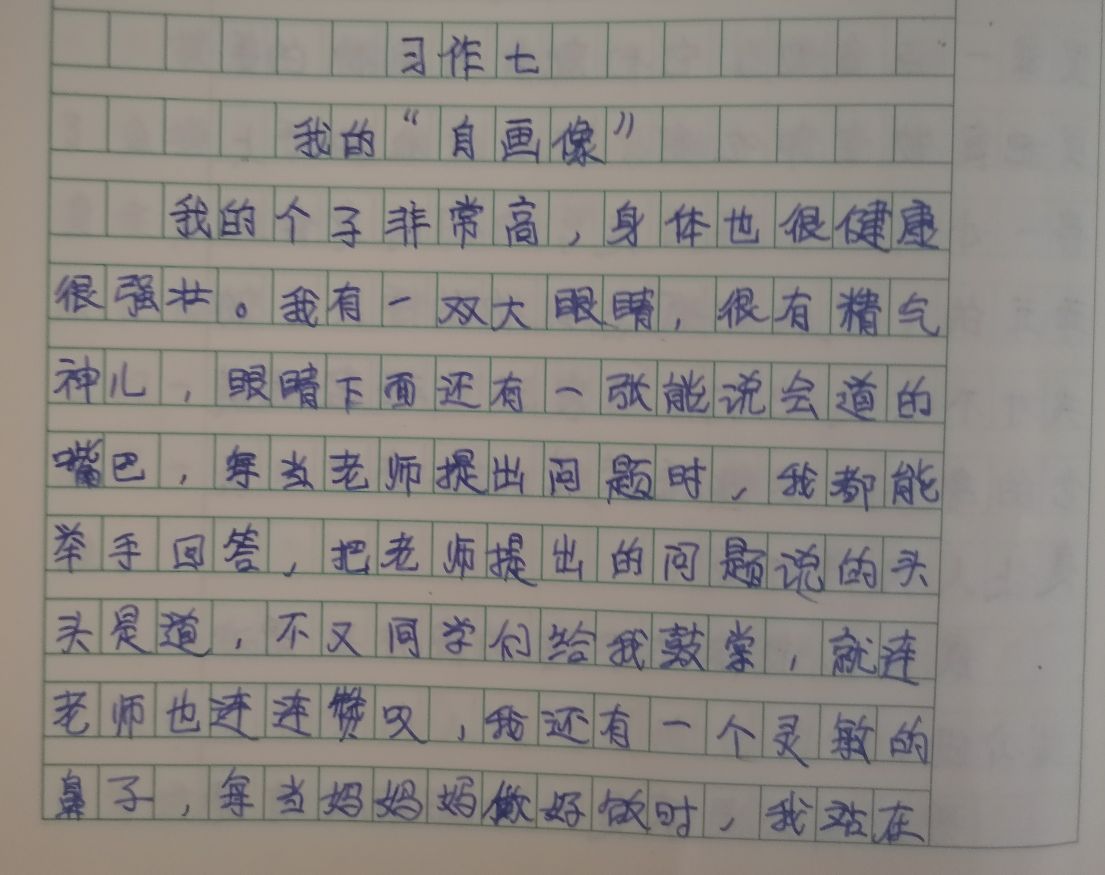 习作七
我的“自画像”
我的个子非常高，身体也很健康
很强壮。我有一双大眼睛，很有精气
神儿，眼睛下面还有一张能说会道的
嘴巴，每当老师提出问题时，我都能
举手回答，把老师提出的问题说的头
头是道，不又同学们给我鼓掌，就连
老师也连连赞叹，我还有一个灵敏的
鼻子，每当妈妈妈做好饭时，我站在